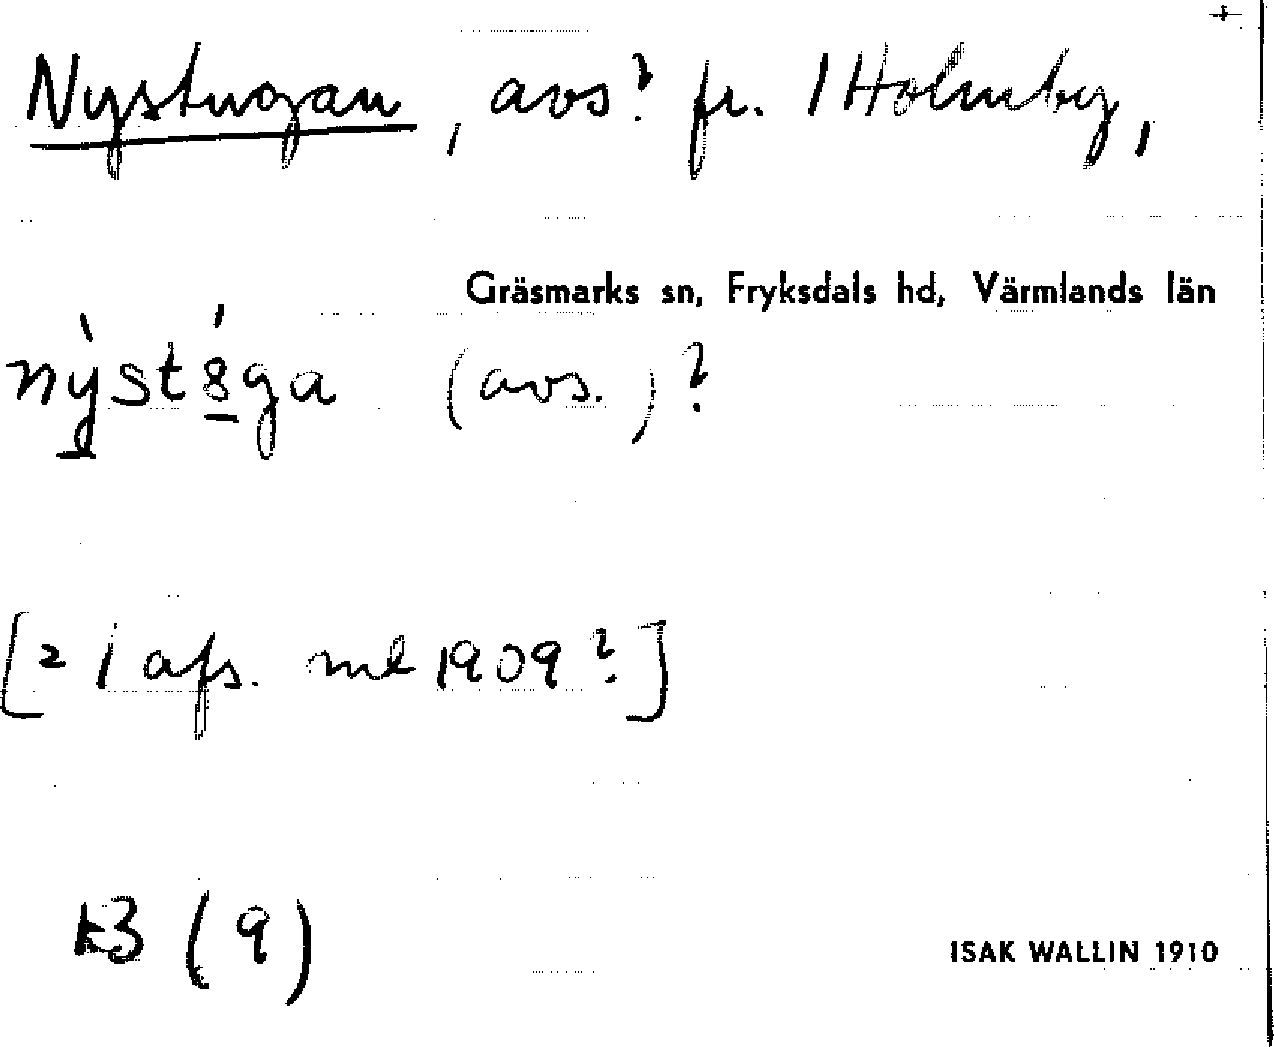 Nystugan, avs? fr. 1 Holmby,
Gräsmarks sn, Fryksdals hd, Värmlands län
nỳst8́ga (avs.)?
[= 1 afs. ml 1909?]
k3 (9)
ISAK WALLIN 1910